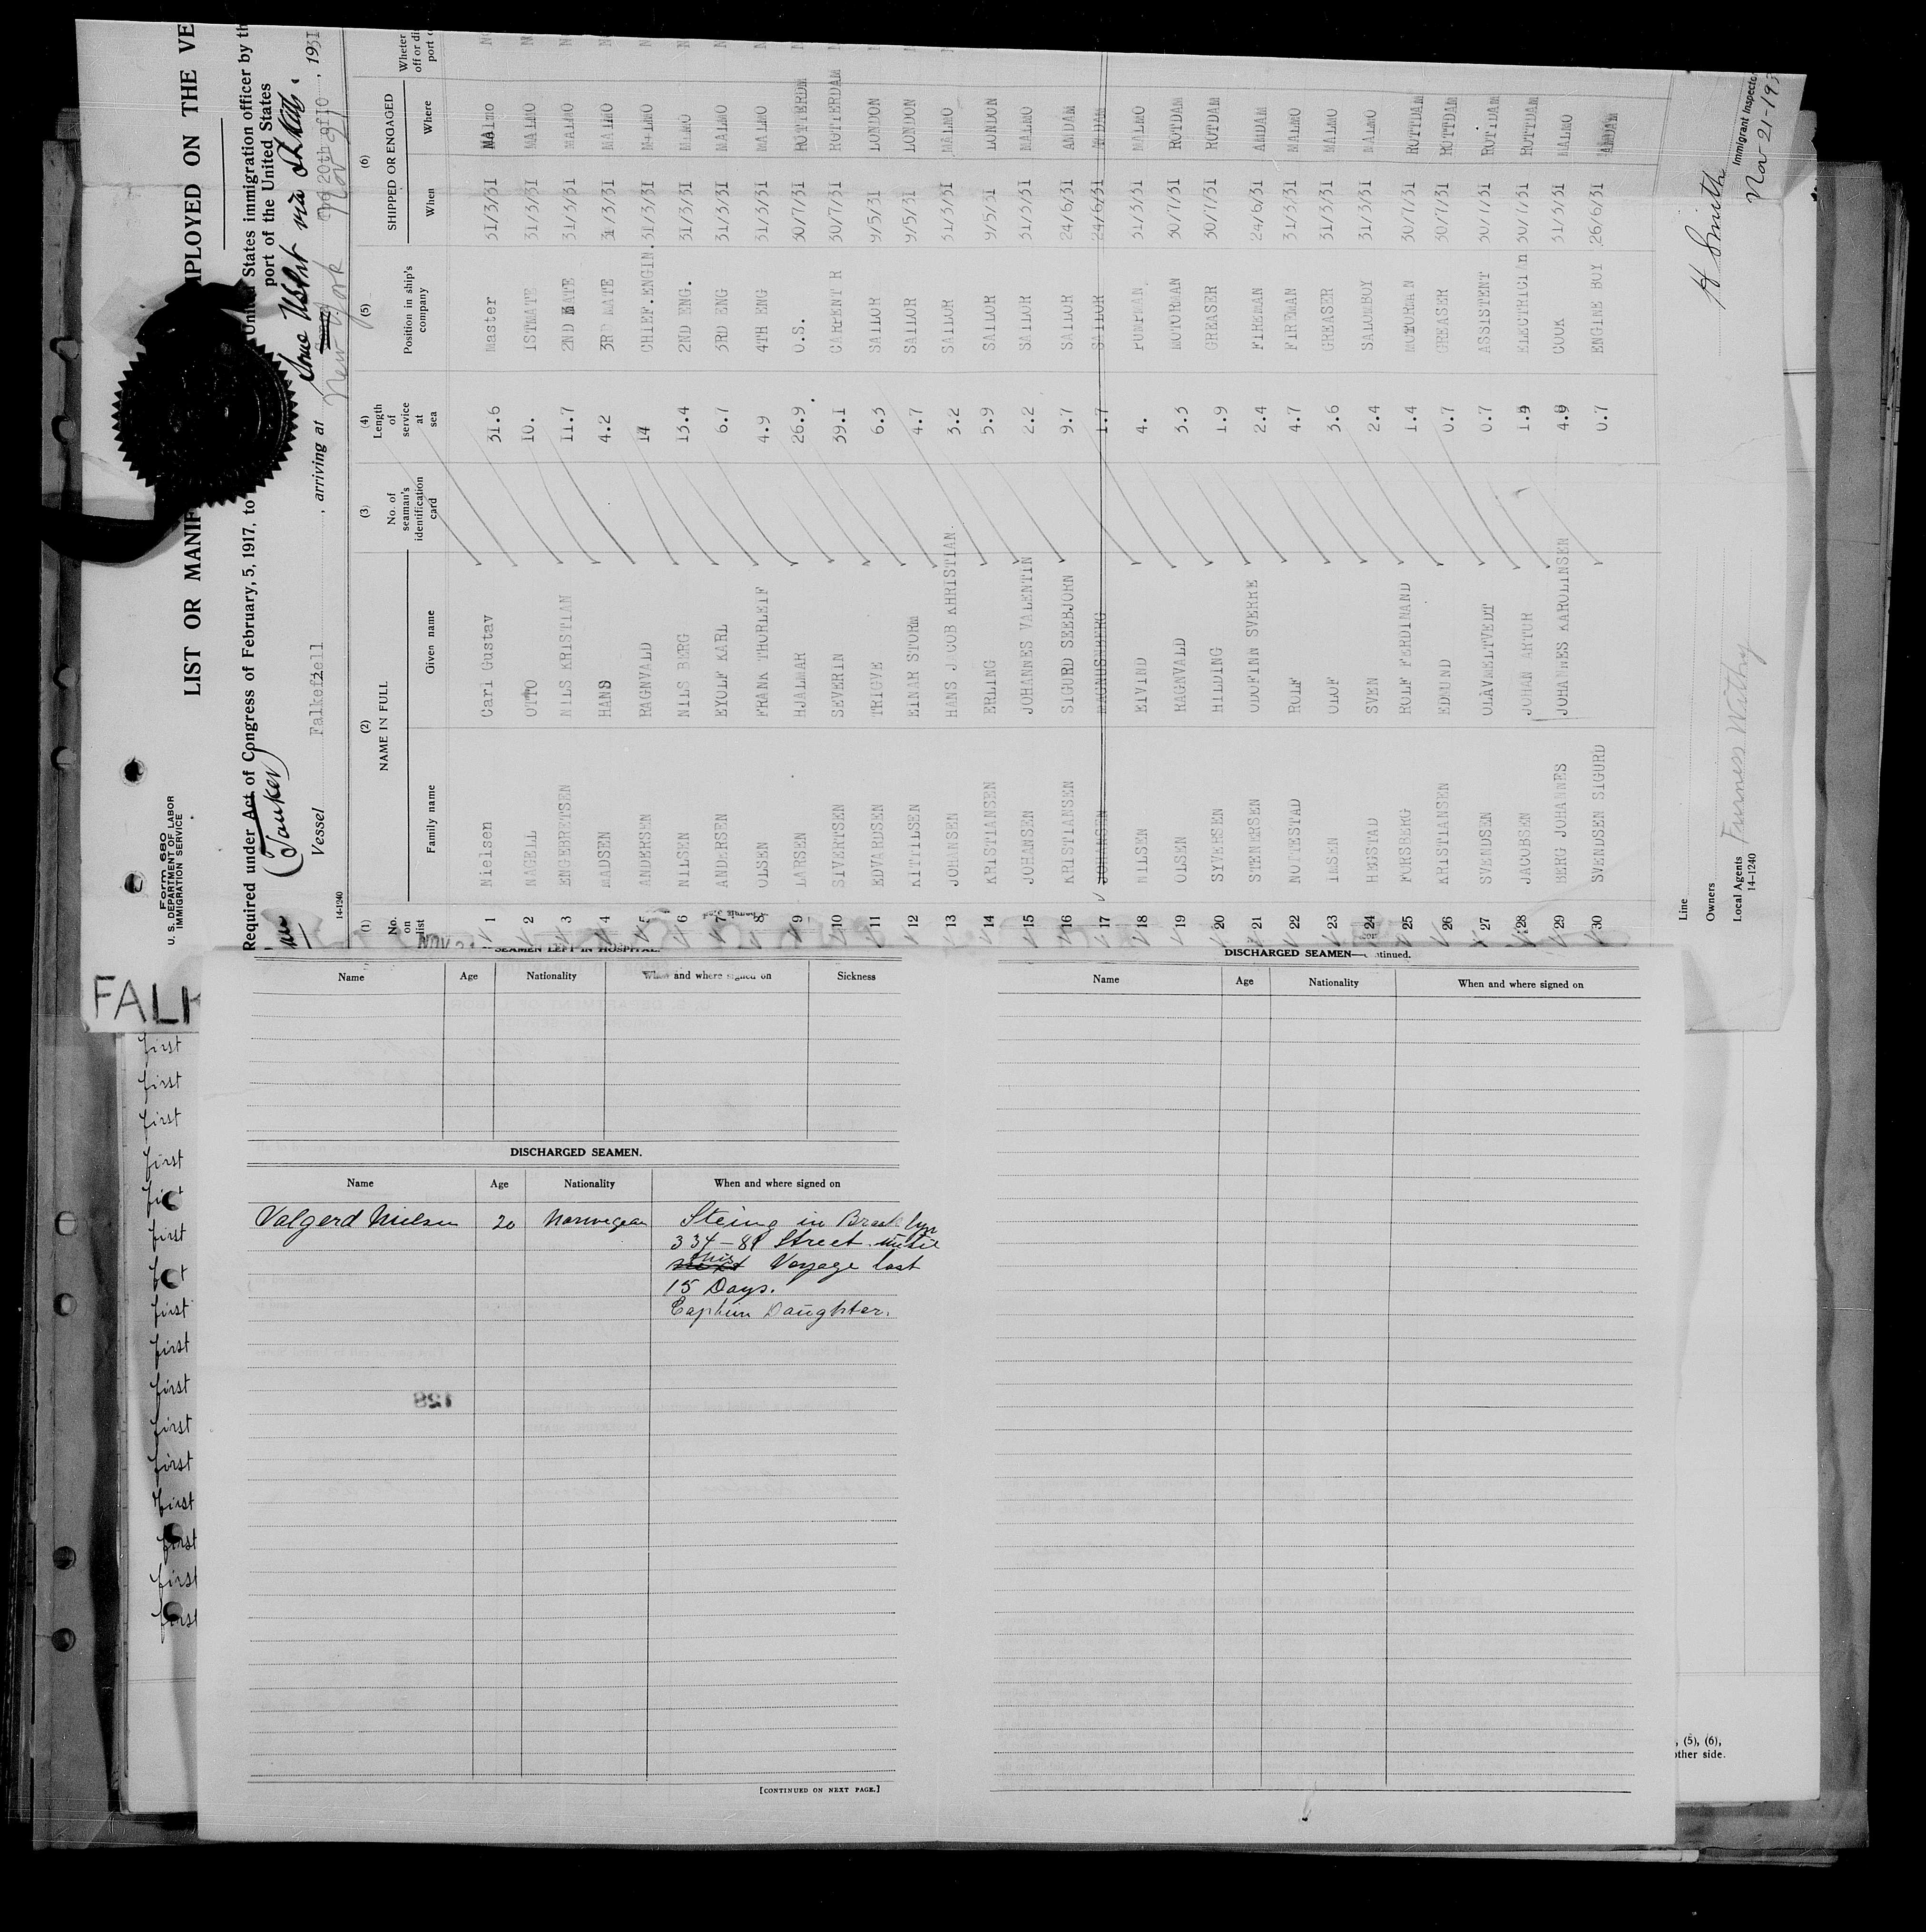 Form 680
U. S. DEPARTMENT OF LABOR
IMMIGRATION SERVICE
LIST OR MANIF
MPLOYED ON THE VE
Required under Act of Congress of February, 5, 1917, to
United States immigration officer by th
port of the United States
(Tanker)
Vessel Falkefjell , arriving at New York Nov 21 , 1931
14-1240
(1) (2) (3) (4) (5) (6)
No. on list NAME IN FULL No. of seaman's identification card Length of service at sea Position in ship's company SHIPPED OR ENGAGED Wheter
Family name Given name When Where off or di
port o
1 Nielsen Carl Gustav 31.6 Master 31/3/31 MAlmo
2 NAGELL OTTO 10. 1STMATE 31/3/31 MALMO
3 ENGEBRETSEN NILS KRISTIAN 11.7 2ND MATE 31/3/31 MALMO
4 MADSEN HANS 4.2 3RD MATE 31/3/31 MALMO
5 ANDERSEN RAGNVALD 14 CHIEF.ENGIN. 31/3/31 MALMO
6 NILSEN NILS BERG 13.4 2ND ENG. 31/3/31 MALMO
7 ANDERSEN EYOLF KARL 6.7 3RD ENG 31/3/31 MALMO
8 OLSEN FRANK THORLEIF 4.9 4TH ENG 31/3/31 MALMO
9 LARSEN HJALMAR 26.9 O.S. 30/7/31 ROTTERDM
10 SIVERTSEN SEVERIN 39.1 CARPENT R 30/7/31 ROTTERDAM
11 EDVARDSEN TRIGVE 6.3 SAILOR 9/5/31 LONDON
12 KITTILSEN EINAR STORM 4.7 SAILOR 9/5/31 LONDON
13 JOHANSEN HANS JACOB KHRISTIAN 3.2 SAILOR 31/3/31 MALMO
14 KRISTIANSEN ERLING 5.9 SAILOR 9/5/31 LONDON
15 JOHANSEN JOHANNES VALENTIN 2.2 SAILOR 31/3/31 MALMO
16 KRISTIANSEN SIGURD SEEBJORN 9.7 SAILOR 24/6/31 AMDAM
17 JOHANSEN MAGNUSNBERG 1.7 SAILOR 24/6/31 AMDAM
18 NILSEN EIVIND 4. PUMPMAN 31/3/31 MALMO
19 OLSEN RAGNVALD 3.3 MOTORMAN 30/7/31 ROTDAM
20 SYVERSEN HILDING 1.9 GREASER 30/7/31 ROTDAM
21 STENERSEN ODDFINN SVERRE 2.4 FIREMAN 24/6/31 AMDAM
22 NOTTESTAD ROLF 4.7 FIREMAN 31/3/31 MALMO
23 IMSEN OLOF 3.6 GREASER 31/3/31 MALMO
24 HEGSTAD SVEN 2.4 SALOMBOY 31/3/31 MALMO
25 FORSBERG ROLF FERDINAND 1.4 MOTORMAN 30/7/31 ROTTDAM
26 KRISTIANSEN EDMUND 0.7 GREASER 30/7/31 ROTTDAM
27 SVENDSEN OLAVMELTVEDT 0.7 ASSISTENT 30/7/31 ROTTDAM
28 JACOBSEN JOHAN ARTUR 1.9 ELECTRICIAN 30/7/31 ROTTDAM
29 BERG JOHANNES JOHANNES KAROLINSEN 4.9 COOK 31/3/31 MALMO
30 SVENDSEN SIGURD 0.7 ENGINE BOY 26/6/31 AMDAM
Line
Owners
Local Agents Furness Withy
14-1240
H Smith
Immigrant Inspector
Nov-21-193
FALK
first
first
first
first
first
first
first
first
first
first
first
first
first
first
first
first
SEAMEN LEFT IN HOSPITAL.
Name Age Nationality When and where signed on Sickness
DISCHARGED SEAMEN.
Name Age Nationality When and where signed on
Valgerd Nielsen 20 Norwegean Steing in Brooklyn
334-81 Street. until
next this Voyage last
15 Days.
Captein Daughter.
128
[CONTINUED ON NEXT PAGE.]
DISCHARGED SEAMEN—Continued.
Name Age Nationality When and where signed on
, (5), (6),
other side.